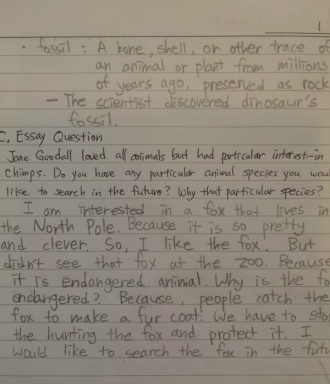 1
• fossil : A bone, shell, or other trace of
an animal or plant from millions
of years ago, preserved as rock
- The scientist discovered dinosaur's
fossil.
C. Essay Question
Jane Goodall loved all animals but had perticular interest-in
chimps. Do you have any particular animal species you wou
like to search in the future? Why that particular species?
I am interested in a fox that lives in
the North Pole. Because it is so pretty
and clever. So, I like the fox. But
didn't see that fox at the zoo. Because
it is endangered animal. Why is the fo
endangered? Because, people catch the
fox to make a fur coat. We have to sto
the hunting the fox and protect it. I
would like to search the fox in the futu